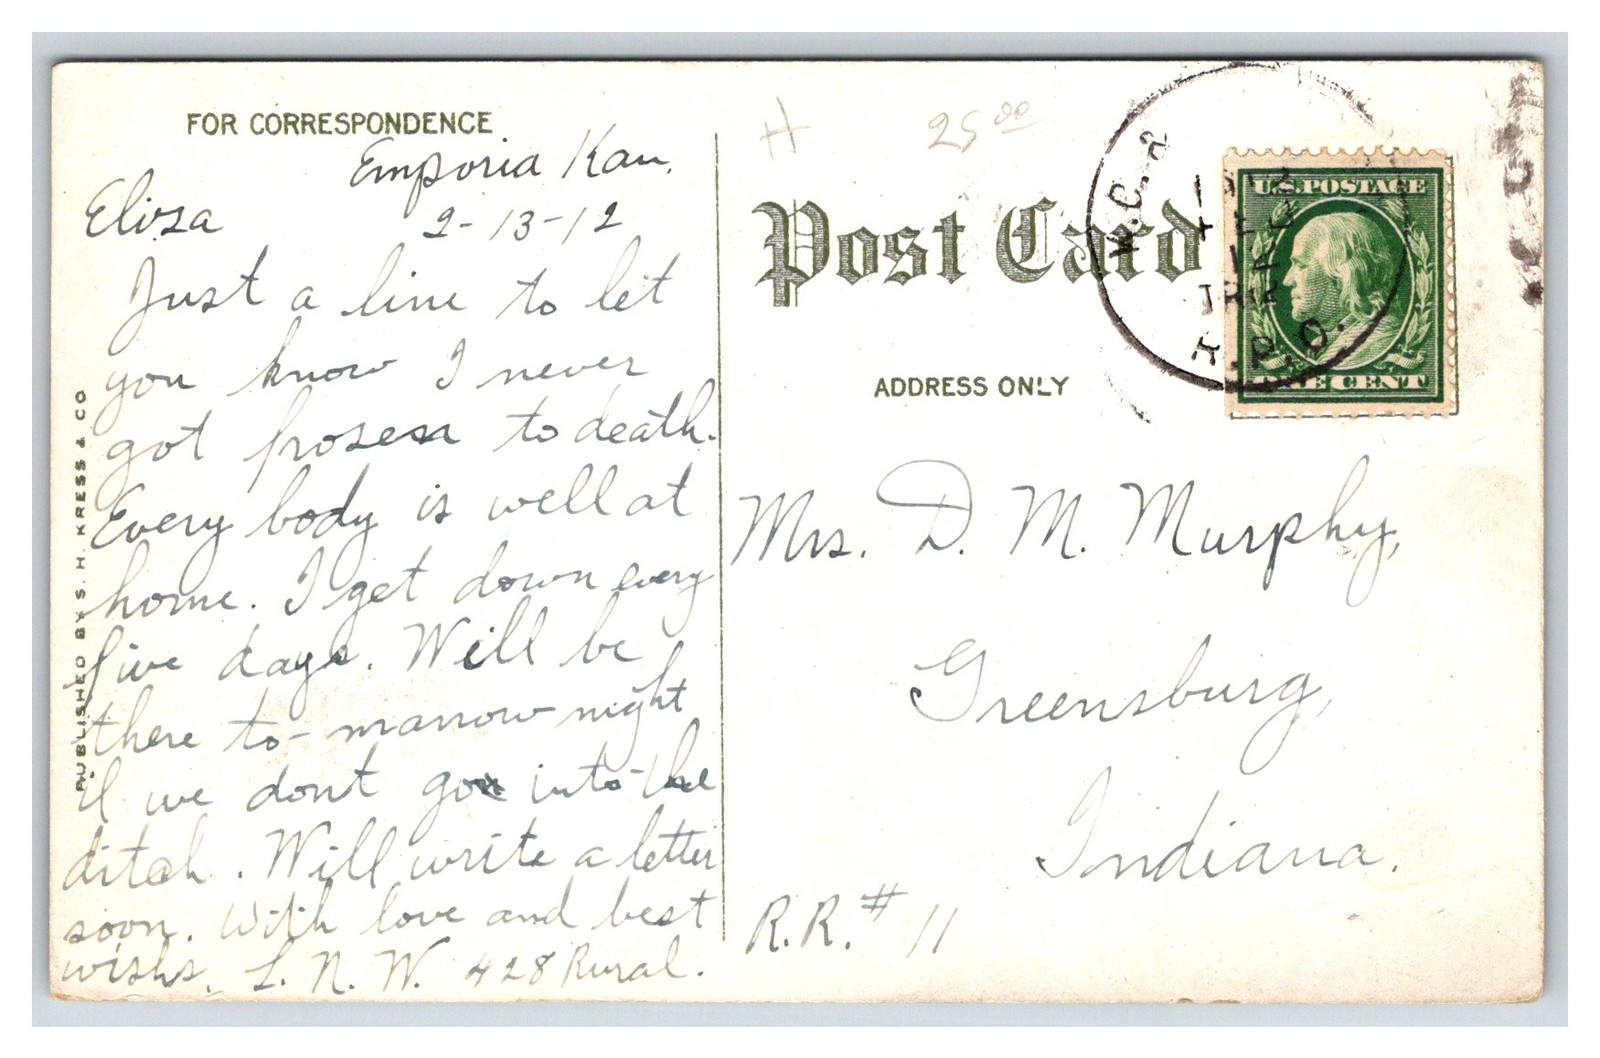 FOR CORRESPONDENCE
Emporia Kan.
Eliza 2-13-12
Just a line to let
you know I never
got frozen to death.
Every body is well at
home. I get down every
five days. Will be
there to-marrow night
if we dont go into the
ditch. Will write a letter
soon. With love and best
wishs. L. N. W. 428 Rural.
PUBLISHED BY S. H. KRESS & CO
H 25 00
Post Card
ADDRESS ONLY
U.S. POSTAGE
ONE CENT
K.C. 2
1912
R.P.O.
Mrs. D. M. Murphy,
Greensburg,
Indiana.
R.R. # 11